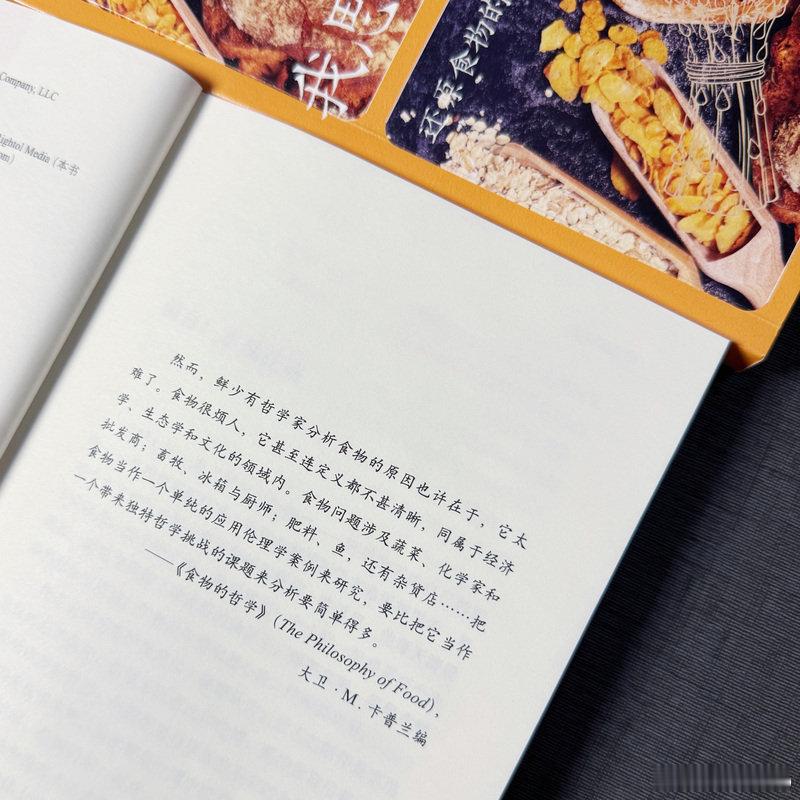 Company, LLC
Rightol Media（本书
com）
我思
还原食物的
然而，鲜少有哲学家分析食物的原因也许在于，它太
难了。食物很烦人，它甚至连定义都不甚清晰，同属于经济
学、生态学和文化的领域内。食物问题涉及蔬菜、化学家和
批发商；畜牧、冰箱与厨师；肥料、鱼，还有杂货店……把
食物当作一个单纯的应用伦理学案例来研究，要比把它当作
一个带来独特哲学挑战的课题来分析要简单得多。
——《食物的哲学》（The Philosophy of Food），
大卫·M.卡普兰编